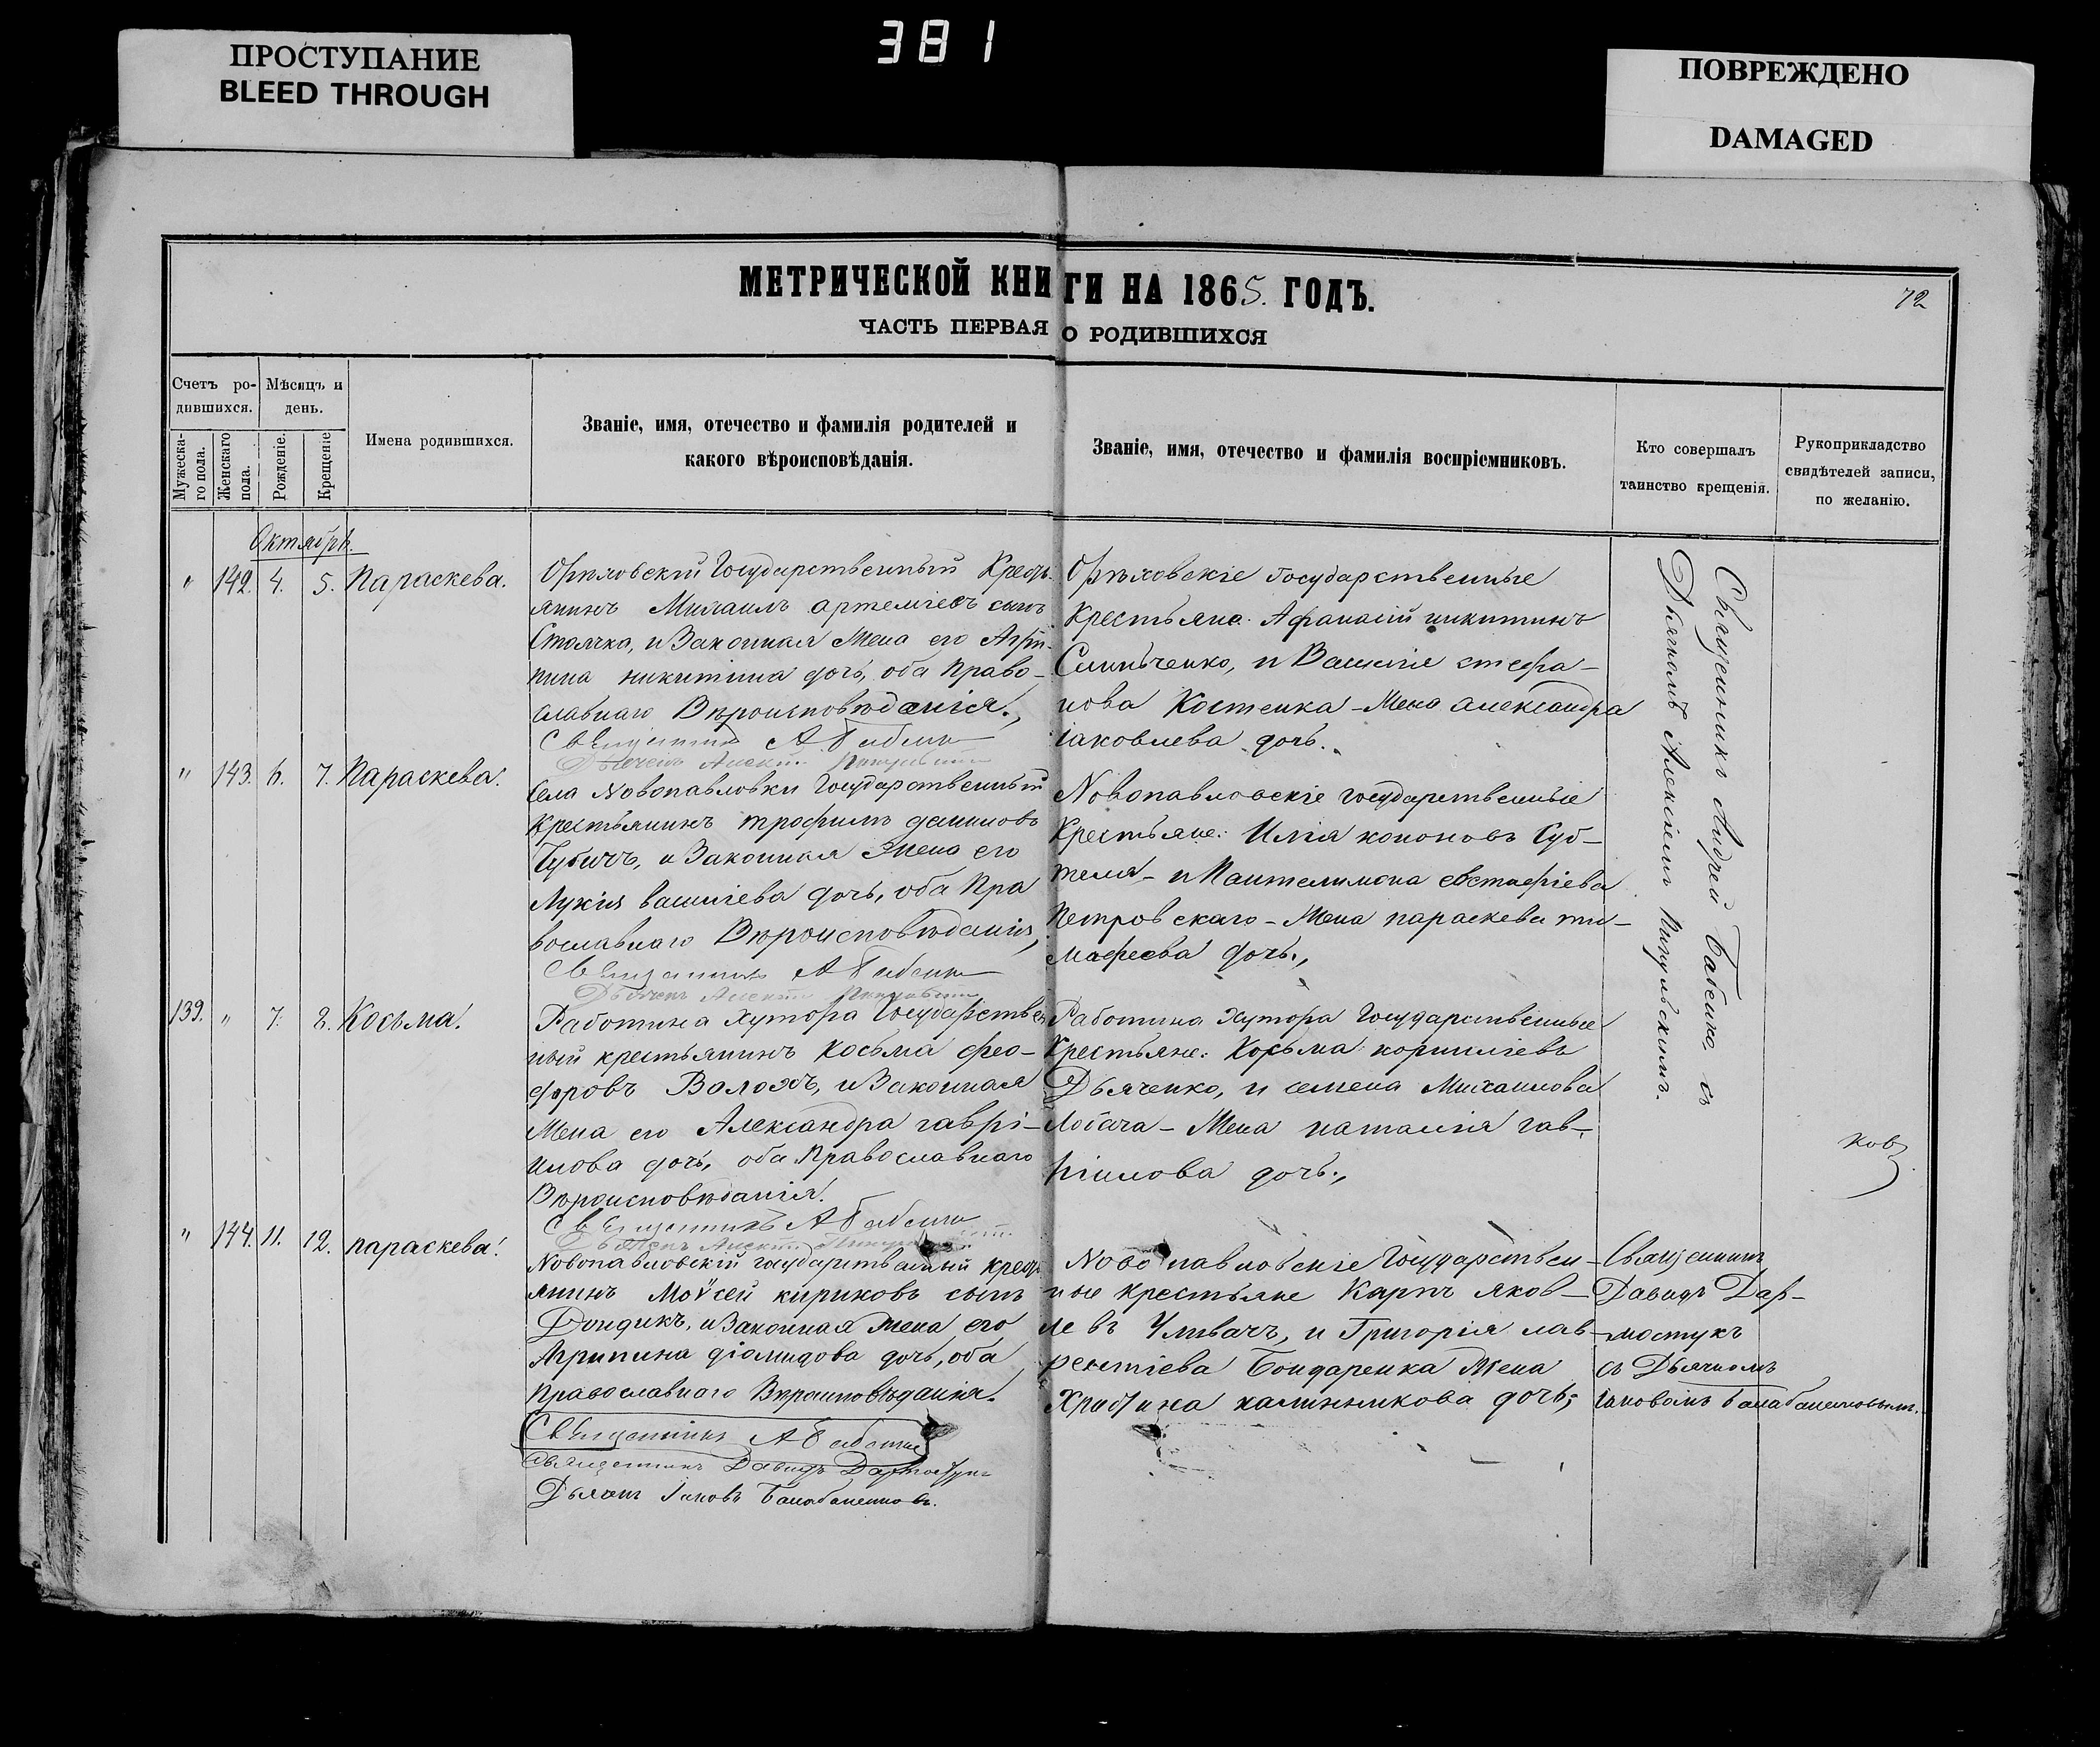 381
ПРОСТУПАНИЕ
BLEED THROUGH
ПОВРЕЖДЕНО
DAMAGED
72
МЕТРИЧЕСКОЙ КНИГИ НА 1865. ГОДЪ.
ЧАСТЬ ПЕРВАЯ О РОДИВШИХСЯ
Счетъ ро-
дившихся.
Мужеска-
го пола.
Женскаго
пола.
Мѣсяцъ и
день.
Рожденіе.
Крещеніе
Имена родившихся.
Званіе, имя, отечество и фамилія родителей и
какого вѣроисповѣданія.
Званіе, имя, отечество и фамилія воспріемниковъ.
Кто совершалъ
таинство крещенія.
Рукоприкладство
свидѣтелей записи,
по желанію.
Октябрь.
" 142. 4. 5. Параскева.
Орѣловскій Государственный Кресть-
янинъ Михаилъ артеміевъ сынъ
и Законная Жена его Агри-
пина никитина дочь, оба Право-
славнаго Вѣроисповѣданія.,
Священникъ А Бабенко
Орѣловскіе Государственные
Крестьяне. Афанасій никитинъ
и Василія стефа-
нова Костенка - Жена александра
іаковлева дочь.
Священникъ Андрей Бабенко, съ
Дьячкомъ Алексіемъ
" 143. 6. 7. Параскева.
Села Новопавловки Государственный
Крестьянинъ трофимъ даниловъ
и Законная Жена его
Лукія василіева дочь, оба Пра
вославнаго Вѣроисповѣданія,
Священникъ А Бабенко
Новопавловскіе государственные
Крестьяне: Илія кононовъ Суб-
теля - и Пантелимона евстафіева
Петровскаго - Жена параскева ти-
мофеева дочь.,
139. " 7. 8. Косьма.
Работина Хутора Государствен
ный крестьянинъ Косьма фео-
доровъ Волохъ, и Законная
Жена его Александра гаврі-
илова дочь, оба Православнаго
Вѣроисповѣданія.
Священникъ А Бабенко
Работина Хутора Государственные
Крестьяне: Косьма корниліевъ
Дьяченко, и семена Михаилова
Лобача - Жена наталія гав-
ріилова дочь.,
ковъ
" 144. 11. 12. параскева.
Новопавловскій государственный крест
янинъ Моѵсей кириковъ сынъ
Дондикъ, и Законная Жена его
Агрипина діомидова дочь, оба
Православнаго Вѣроисповѣданія.
Священникъ А Бабенко
Священникъ Давидъ
Дьячекъ Іаковъ
Ново павловскіе Государствен-
ные крестьяне Карпъ яков-
левъ и Григорія лав-
рентіева Бондаренка Жена
Христина калинникова дочь;
Священникъ
Давидъ Дар-
мостукъ
съ Дьячкомъ
Іаковомъ